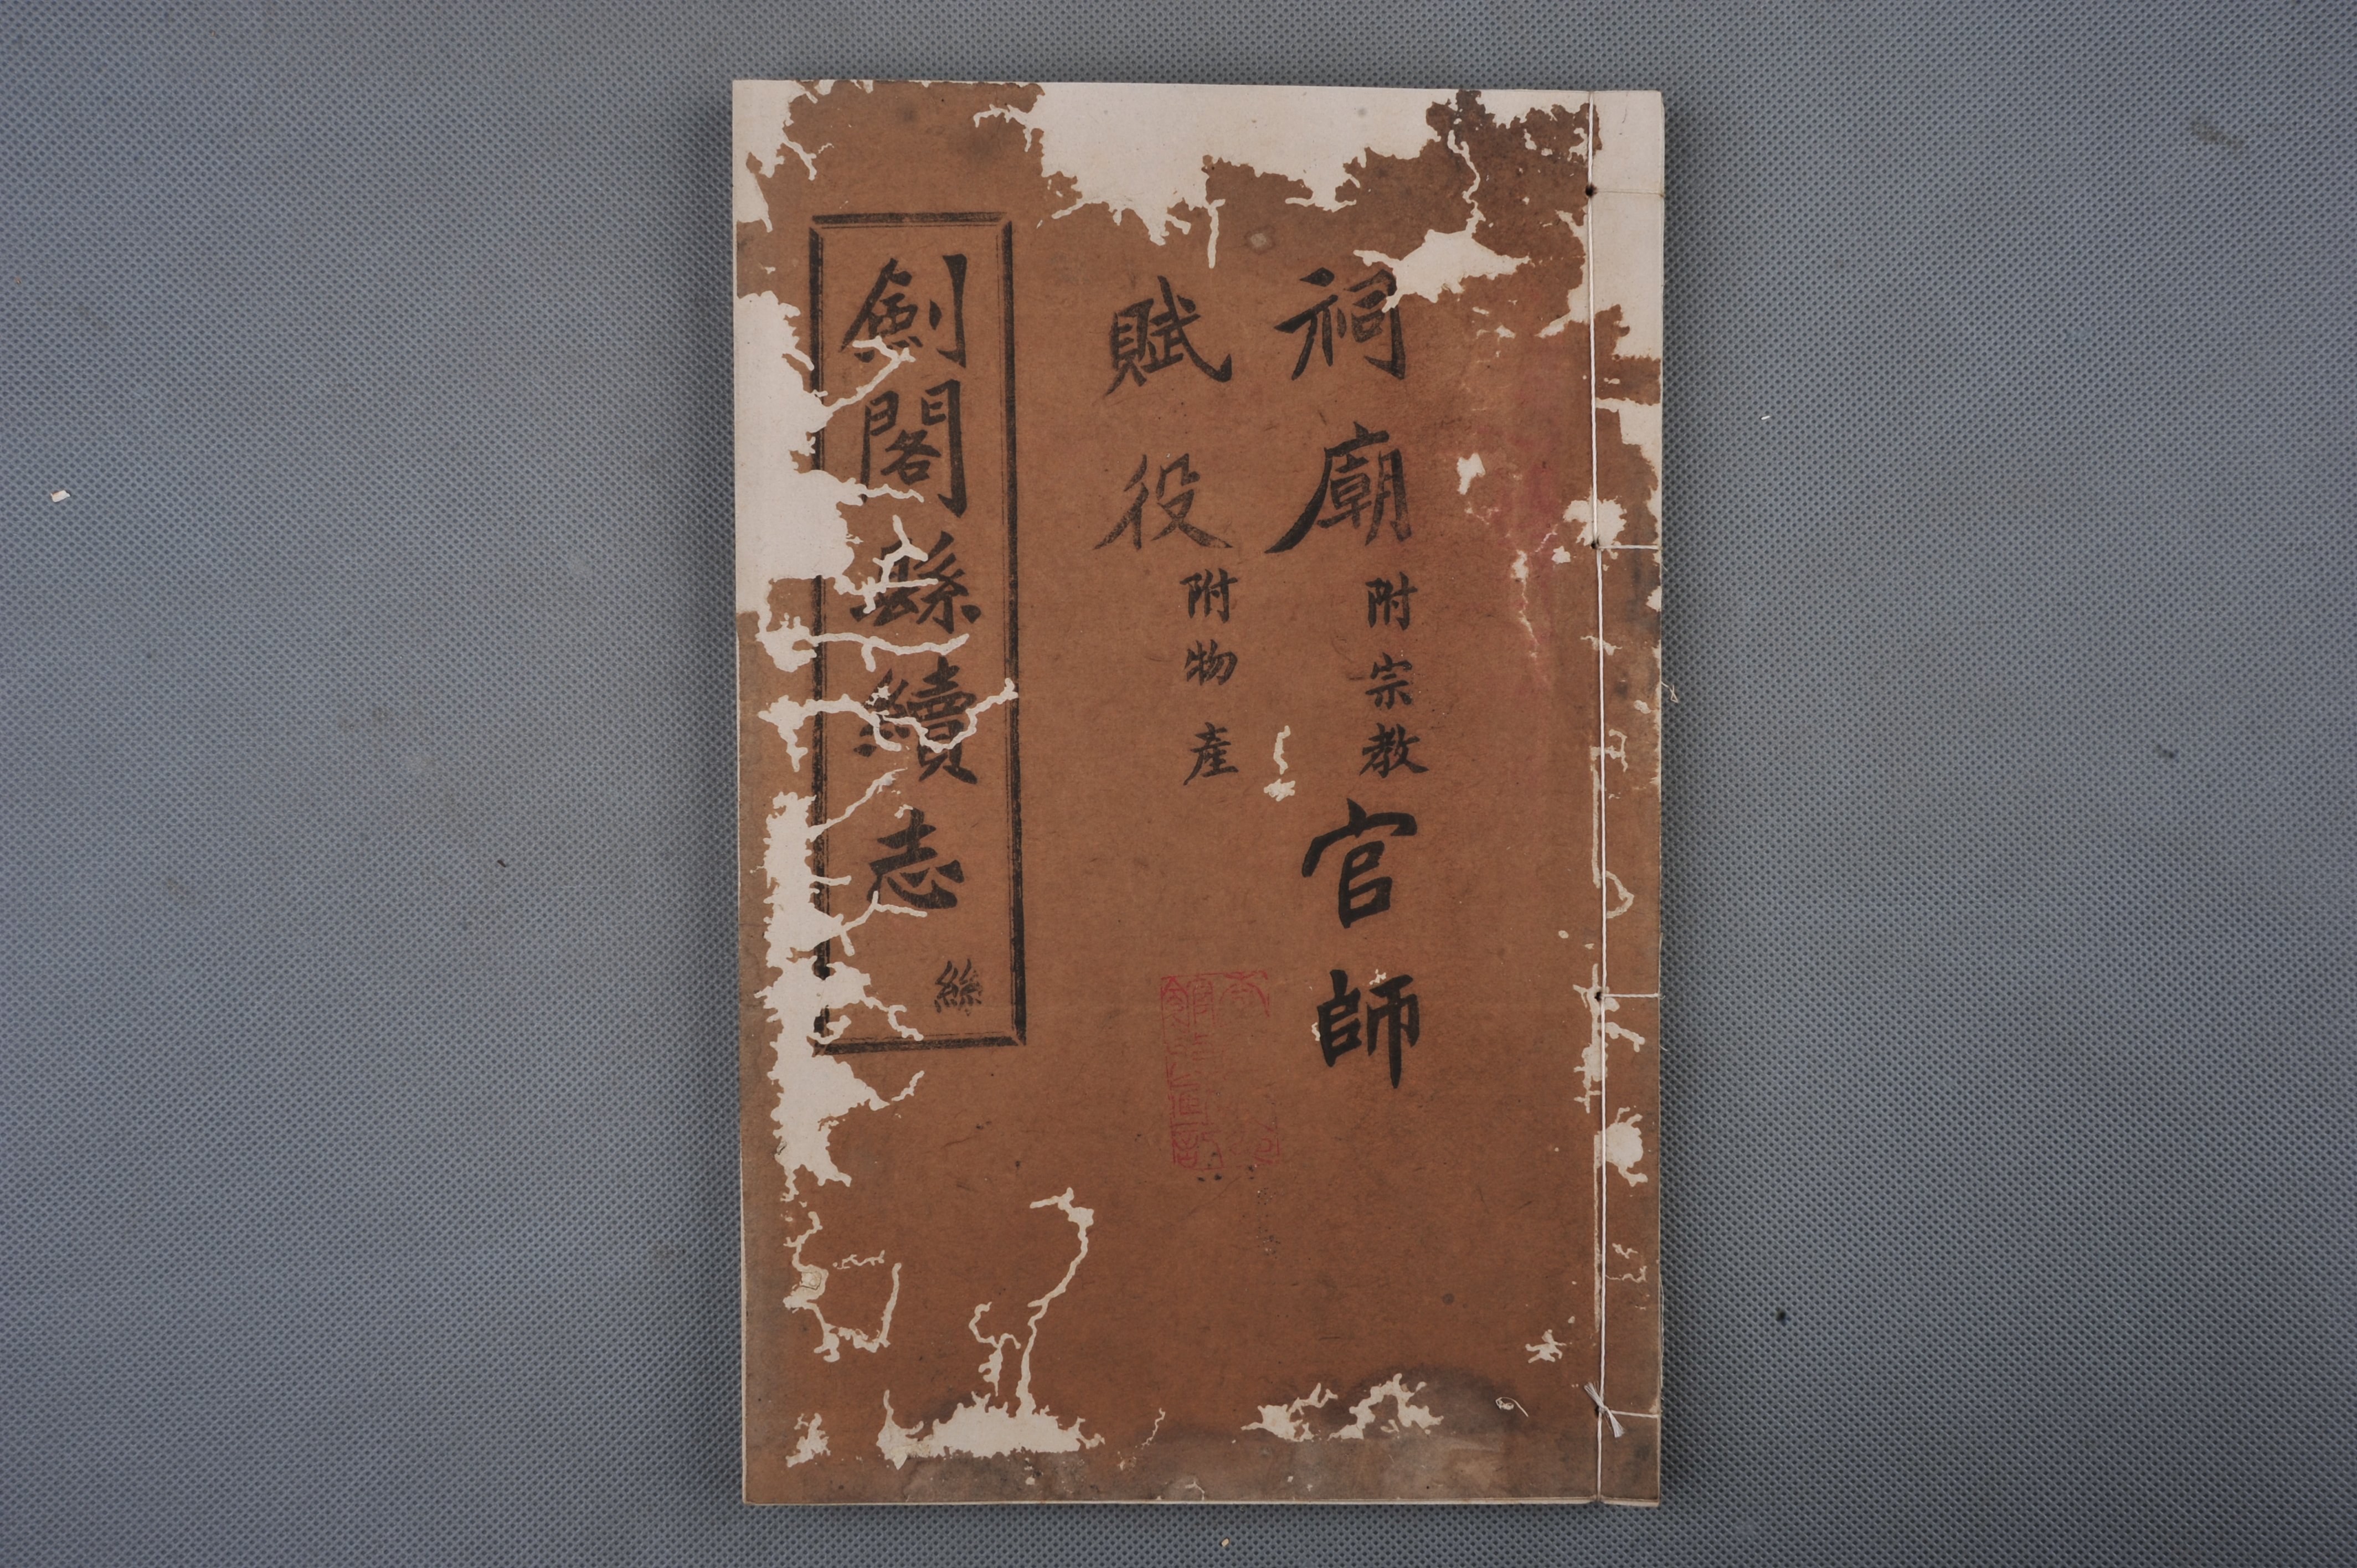 祠廟附宗教官師
賦役附物産
劍閣縣續志 絲